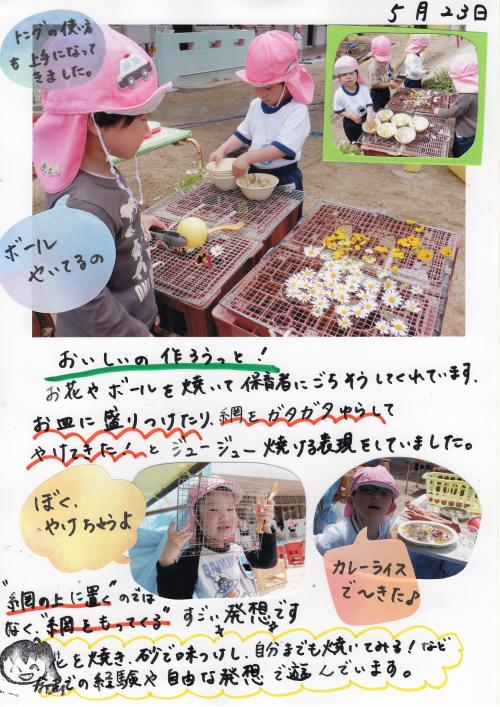 5月23日
トングの使い方
も上手になって
きました。
ボール
やいてるの
おいしいの作ろうっと!
お花やボールを焼いて保育者にごちそうしてくれています。
お皿に盛りつけたり、網をガタガタゆらして
やけてきた!とジュージュー焼ける表現をしていました。
ぼく、
やけちゃうよ
カレーライス
で〜きた♪
"網の上に置く"のでは
なく、"網ともってくる"すごい発想です
を焼き、砂で味つけし、自分までも焼いてみる!など
の経験や自由な発想で遊んでいます。